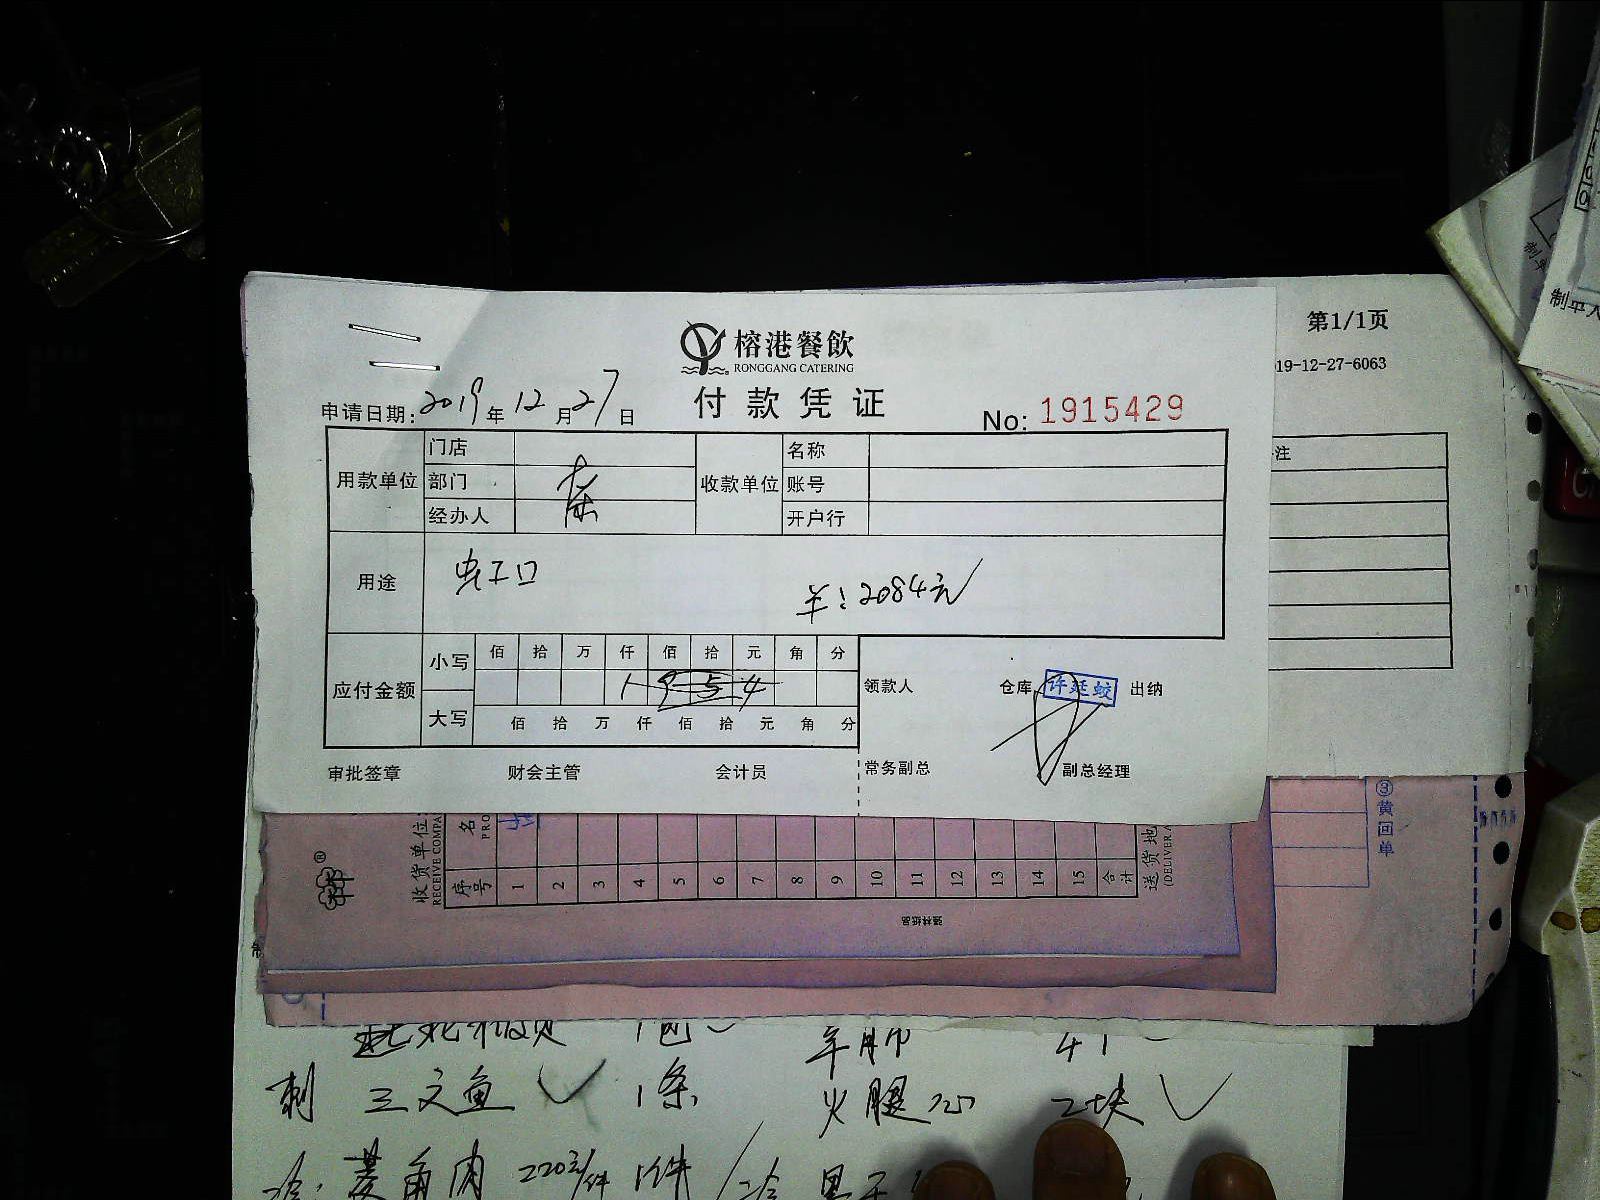 第1/1页
榕港餐飲
RONGGANG CATERING
19-12-27-6063
付款凭证
申请日期: 2019年12月27日
No: 1915429
用款单位 门店 收款单位 名称
部门 账号
经办人 开户行
注
用途 虹口 ¥:2084元
应付金额 小写 佰 拾 万 仟 佰 拾 元 角 分
1954
大写 佰 拾 万 仟 佰 拾 元 角 分
领款人 仓库 许延蛟 出纳
审批签章 财会主管 会计员 常务副总 副总经理
③黄回单
收货单位:
RECEIVE COMPA
序号 1 2 3 4 5 6 7 8 9 10 11 12 13 14 15 合计
名
PRO
送货地
(DELIVER A
1包 4个
刺 三文鱼 1条 火腿心 2块
菱角肉 220元/件 1件
制单人